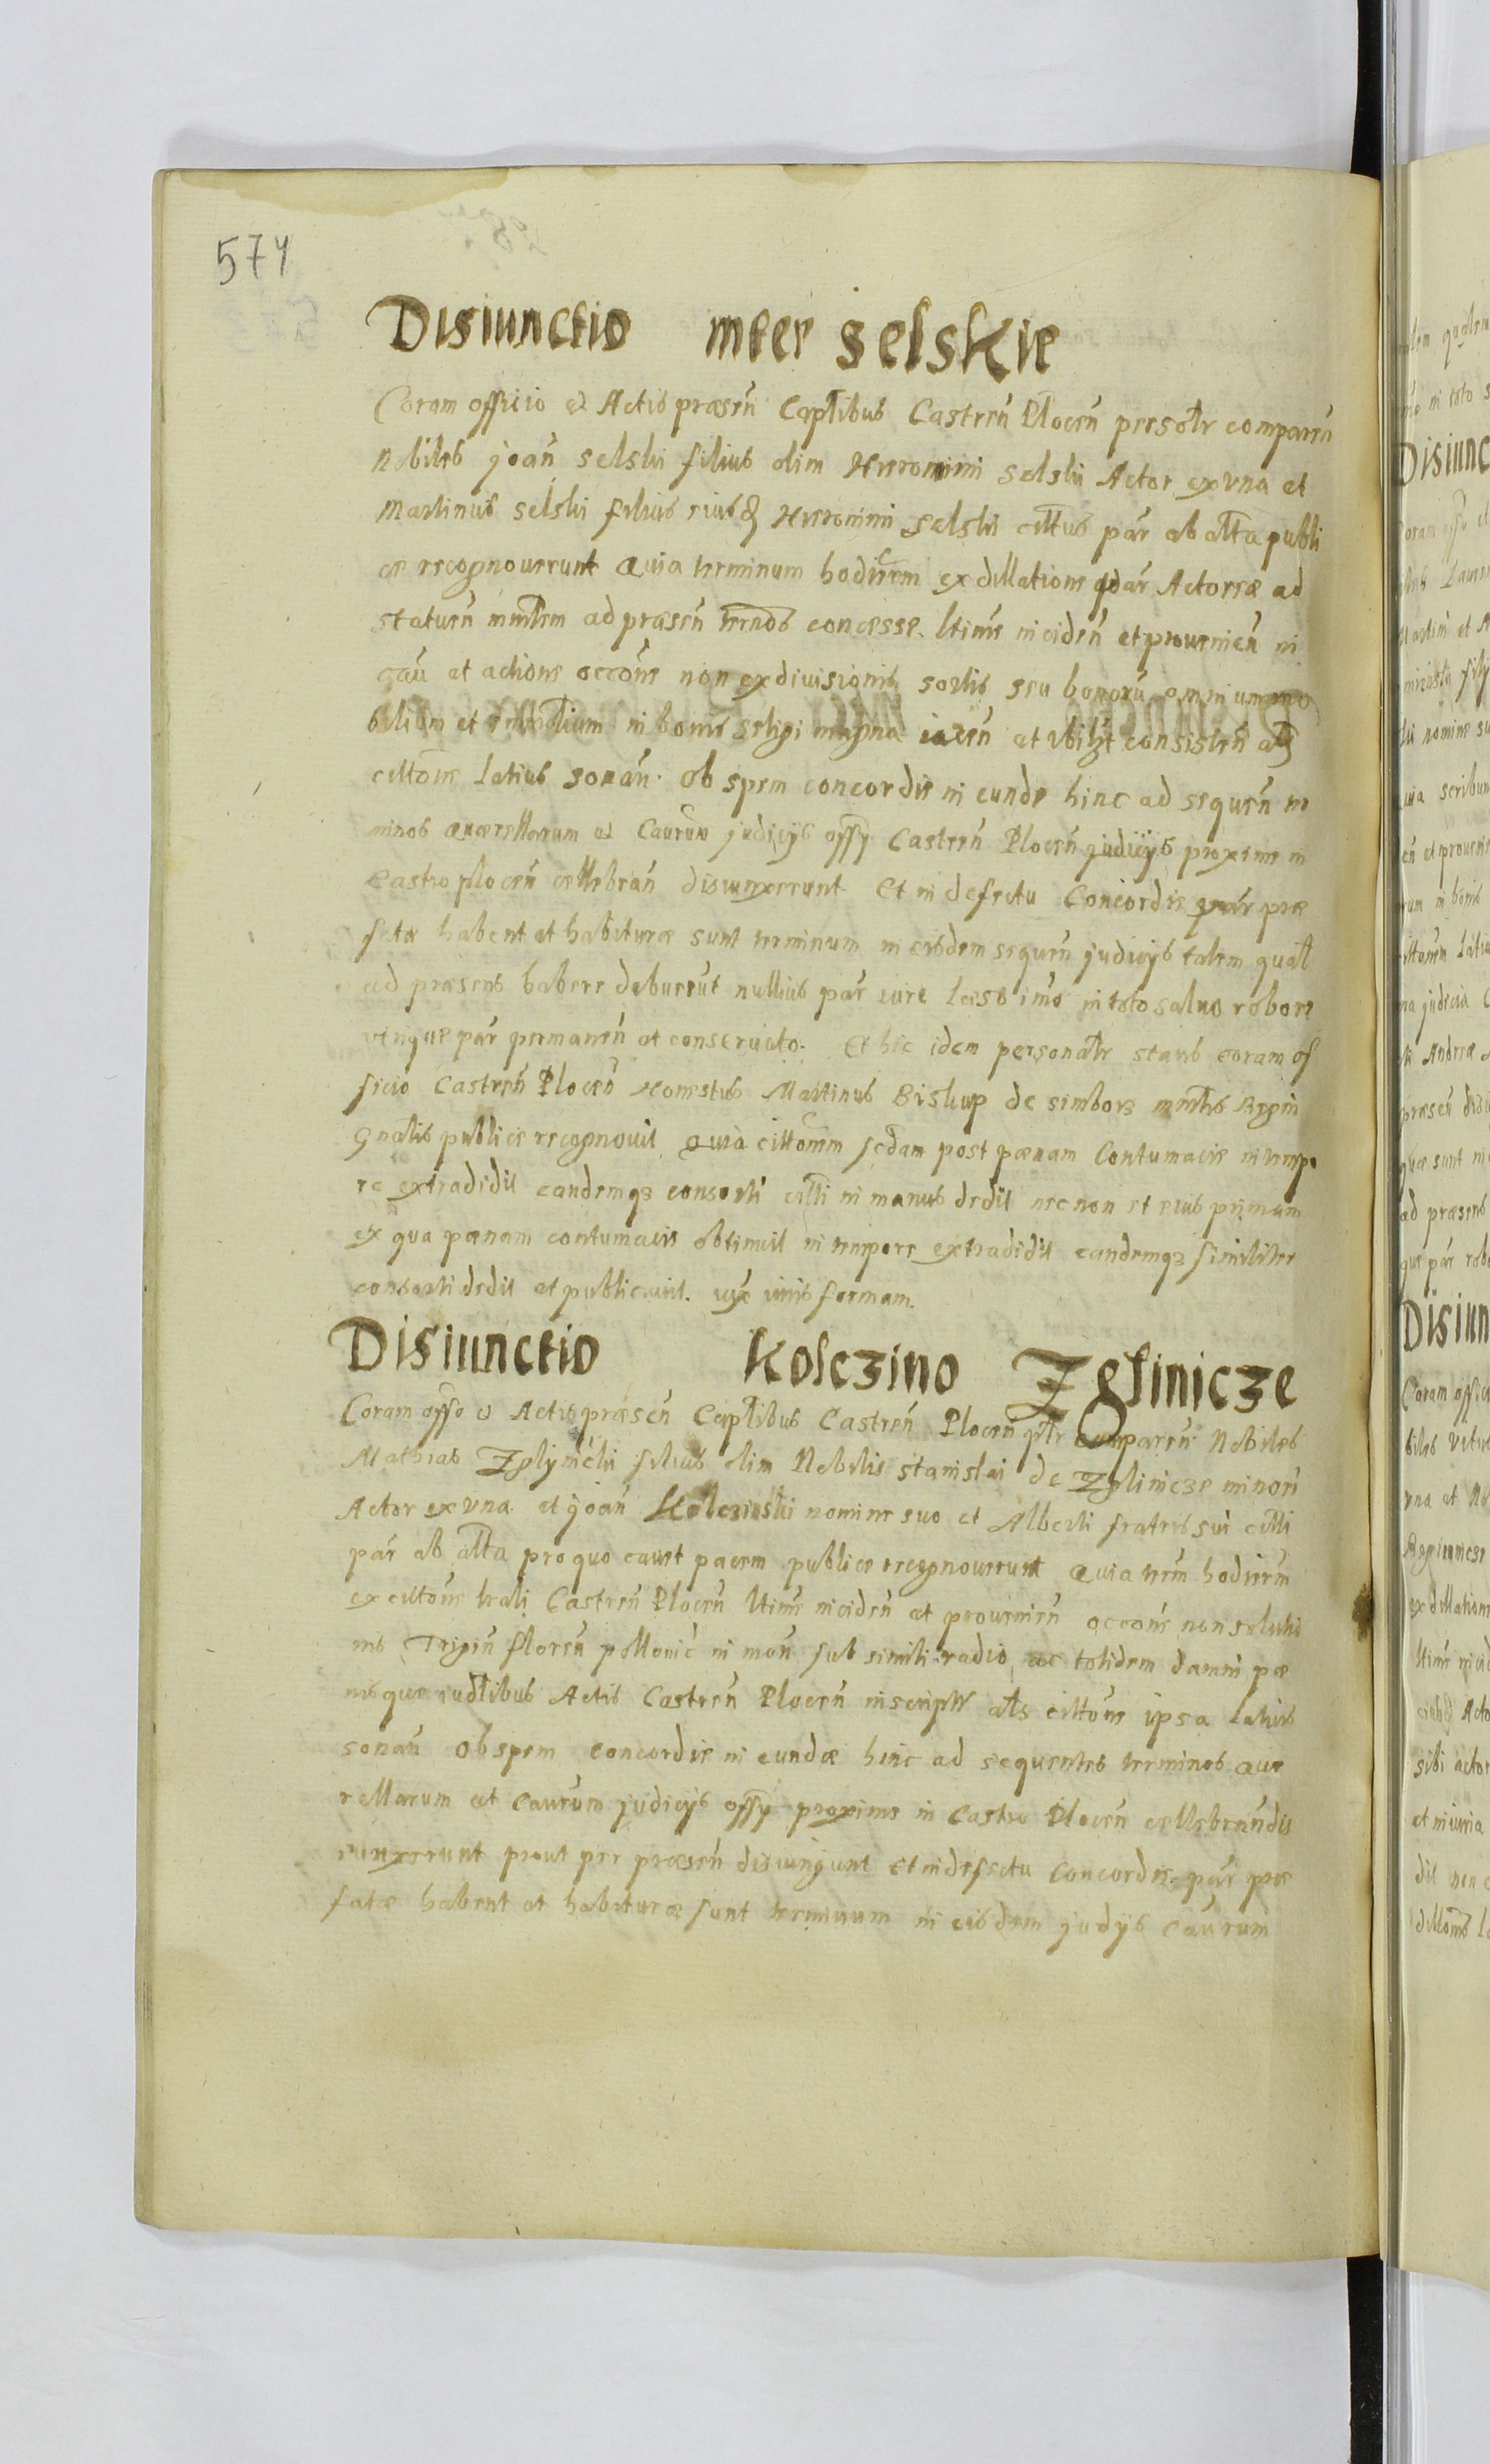 574
Disiunctio inter Selskie
Coram officio et Actis præsen̄ Captlibus Castren̄ Plocen̄ persotr comparen̄
Nobiles joan̄ Selski filius olim Hieronimi Selski Actor ex vna et
Martinus Selski filius eiusd Hieronimi Selski cittus par̄ ab altta publi
ce recognouerunt Quia terminum hodiernm ex dillatione par̄ Actoreæ ad
statuen̄ mintrm ad præsen̄ termos concesse. Itime inciden̄ et prouenien̄ in
cau et actione occone non ex diuisionis sortis seu bonorū omnium mo
bilium et immbilium in bonis Seligi magna iacen̄ et vbilzt consisten̄ als
cittone latius sonan̄. Ob spem concordiæ in eunde hinc ad sequen̄ ter
minos quærellarum et Caurum judicijs offy Castren̄ Plocen̄ judicijs proxime in
Castro plocen̄ cellebran̄ disiunxerunt Et in defectu Concordiæ par̄ præ
fatæ habent et habituræ sunt terminum in eisdem sequen̄ judicijs talem qualt
ad præsens habere debuerūt nullius par̄ iure læso imo in toto saluo robore
vtrique par̄ permanen̄ et conseruato. Et hic idem personaltr stans coram of
ficio Castren̄ Plocen̄ Honestus Martinus Biskup de simborz mintis Regin
gnalis publice recognouit. Quia cittonem scdam post pœnam Contumaciæ in tempo
re extradidit eandemqz consorti citti in manus dedit nec non et eius primam
ex qua pœnam contumaciæ obtinuit in tempore extradidit eandemqz similiter
consorti dedit et publicauit. iux iuris formam.
Disiunctio Kolczino Zglinicze
Coram offo et Actis præsen̄ Captlibus Castren̄ Plocen̄ ptr comparen̄ Nobiles
Mathias Zglynicki filius olim Nobilis Stanislai de Zglinicze minori
Actor ex vna et joan̄ Kolczinski nomine suo et Alberti fratris sui citti
par̄ ab altta pro quo cauet pacem publice recognouerunt Quia term hodiernm
ex cittone trali Castren̄ Plocen̄ Itime inciden̄ et prouenien̄ occone non solutio
nis Trigin̄ floren̄ pollonic̄ in mon̄ sub simili vadio ac totidem damni pœ
nisque iudtlibus Actis Castren̄ Plocen̄ inscriptr als cittone ipsa latius
sonan̄ Ob spem concordiæ in eundæ hinc ad sequentes terminos que
rellarum et Caurum judicijs offy proxime in Castro Plocen̄ cellebrandis dis
iunxerunt prout per præsen̄ disiungunt Et in defectu Concordiæ par̄ præ
fatæ habent et habituræ sunt terminum in eisdem judijs Caurum